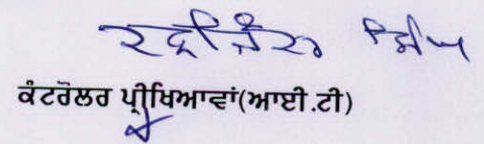 ਸਿੰਘ
ਕੰਟਰੋਲਰ ਪ੍ਰੀਖਿਆਵਾਂ(ਆਈ.ਟੀ)